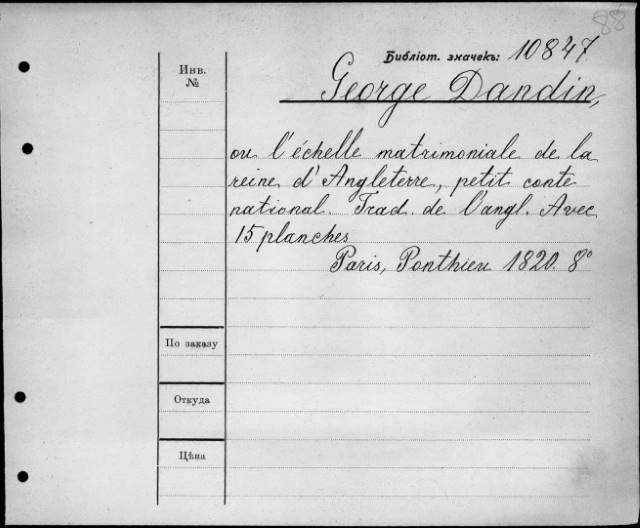 88
Библіот. значекъ: 10847
Инв.
№
George Dandin,
ou l'échelle matrimoniale de la
reine d'Angleterre, petit conte
national. Trad. de l'angl. Avec
15 planches
Paris, Ponthieu 1820. 8°
По заказу
Откуда
Цѣна